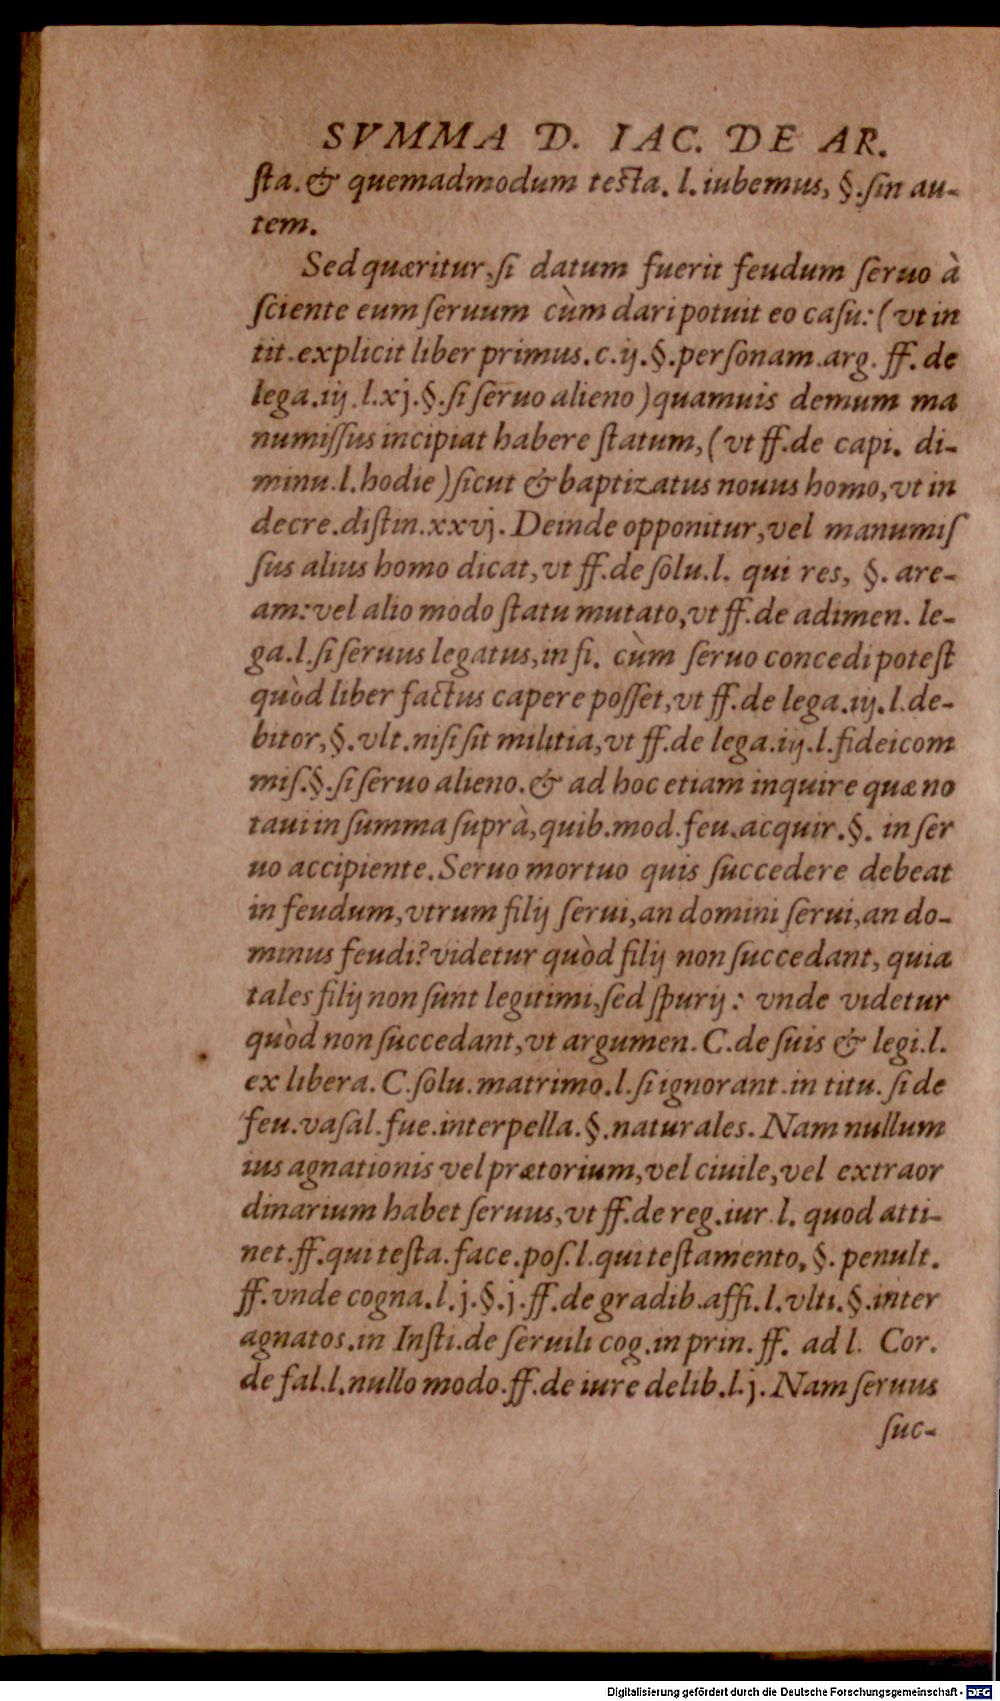 SVMMA D. IAC. DE AR.
ſta. & quemadmodum teſta. l. iubemus, §. ſin au-
tem.
Sed quæritur, ſi datum fuerit feudum ſeruo à
ſciente eum ſeruum cùm dari potuit eo caſu: (vt in
tit. explicit liber primus. c. ij. §. perſonam. arg. ff. de
lega. iij. l. xj. §. ſi ſeruo alieno) quamuis demum ma
numiſſus incipiat habere ſtatum, (vt ff. de capi. di-
minu. l. hodie) ſicut & baptizatus nouus homo, vt in
decre. diſtin. xxvj. Deinde opponitur, vel manumiſ
ſus alius homo dicat, vt ff. de ſolu. l. qui res, §. are-
am: vel alio modo ſtatu mutato, vt ff. de adimen. le-
ga. l. ſi ſeruus legatus, in fi. cùm ſeruo concedi poteſt
quòd liber factus capere poſſet, vt ff. de lega. iij. l. de-
bitor, §. vlt. niſi ſit militia, vt ff. de lega. iij. l. fideicom
miſ. §. ſi ſeruo alieno. & ad hoc etiam inquire quæ no
taui in ſumma ſuprà, quib. mod. feu. acquir. §. in ſer
uo accipiente. Seruo mortuo quis ſuccedere debeat
in feudum, vtrum filij ſerui, an domini ſerui, an do-
minus feudi? videtur quòd filij non ſuccedant, quia
tales filij non ſunt legitimi, ſed ſpurij: vnde videtur
quòd non ſuccedant, vt argumen. C. de ſuis & legi. l.
ex libera. C. ſolu. matrimo. l. ſi ignorant. in titu. ſi de
feu. vaſal. fue. interpella. §. naturales. Nam nullum
ius agnationis vel prætorium, vel ciuile, vel extraor
dinarium habet ſeruus, vt ff. de reg. iur. l. quod atti-
net. ff. qui teſta. face. poſ. l. qui teſtamento, §. penult.
ff. vnde cogna. l. j. §. j. ff. de gradib. affi. l. vlti. §. inter
agnatos. in Inſti. de ſeruili cog. in prin. ff. ad l. Cor.
de fal. l. nullo modo. ff. de iure delib. l. j. Nam ſeruus
ſuc-
Digitalisierung gefördert durch die Deutsche Forschungsgemeinschaft - DFG